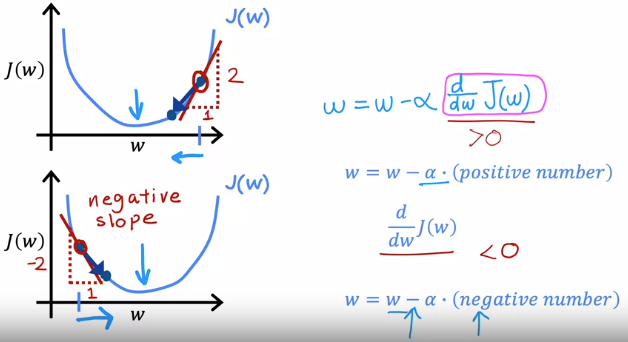 J(w)
J(w)
2
1
w
w = w - α d/dw J(w)
>0
w = w − α · (positive number)
negative
slope
J(w)
J(w)
-2
1
w
d/dw J(w) <0
w = w − α · (negative number)